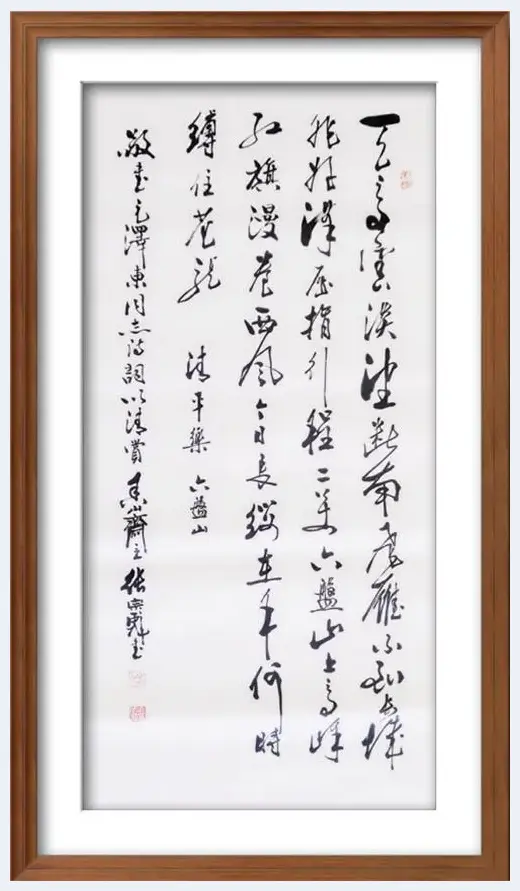 天高雲淡望斷南飛雁不到長城
非好漢屈指行程二萬六盤山上高峰
紅旗漫卷西風今日長纓在手何時
縛住蒼龍 清平樂 六盤山
敬書毛澤東同志詩詞以清賞 齋主張宗彪書